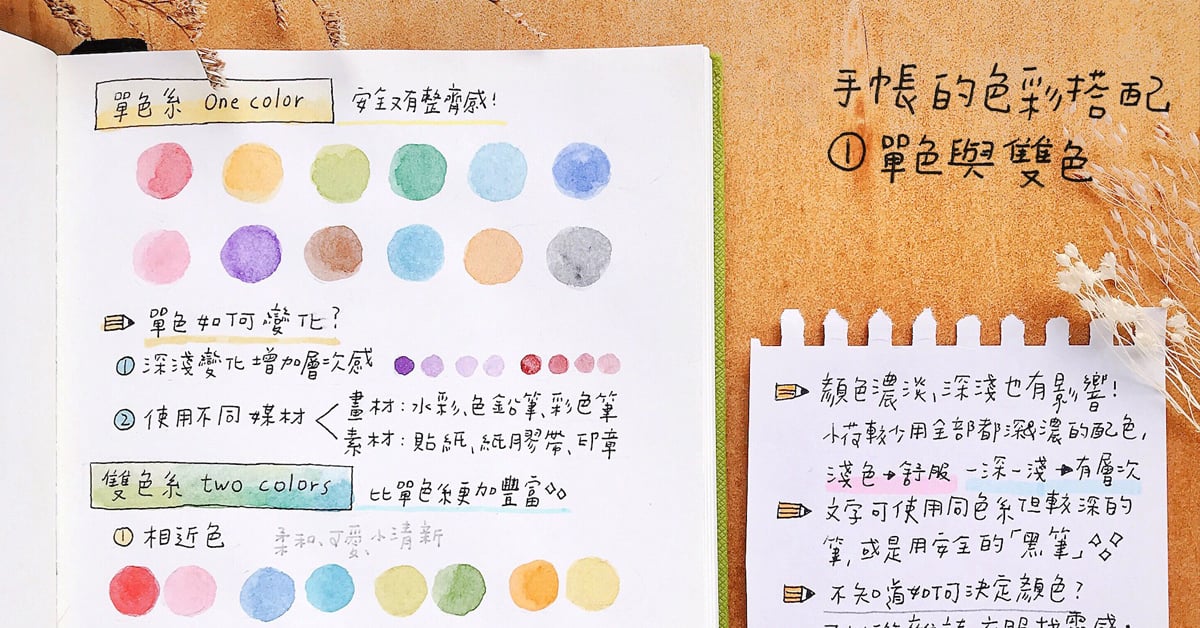 單色系 One color
安全又有整齊感!
單色如何變化?
① 深淺變化增加層次感
② 使用不同媒材
畫材:水彩、色鉛筆、彩色筆
素材:貼紙、紙膠帶、印章
雙色系 two colors
比單色系更加豐富
① 相近色
柔和、可愛、小清新
手帳的色彩搭配
① 單色與雙色
顏色濃淡、深淺也有影響!
小荷較少用全部都深或濃的配色,
淺色→舒服 一深一淺→有層次
文字可使用同色系但較深的
筆,或是用安全的「黑筆」
不知道如何決定顏色?